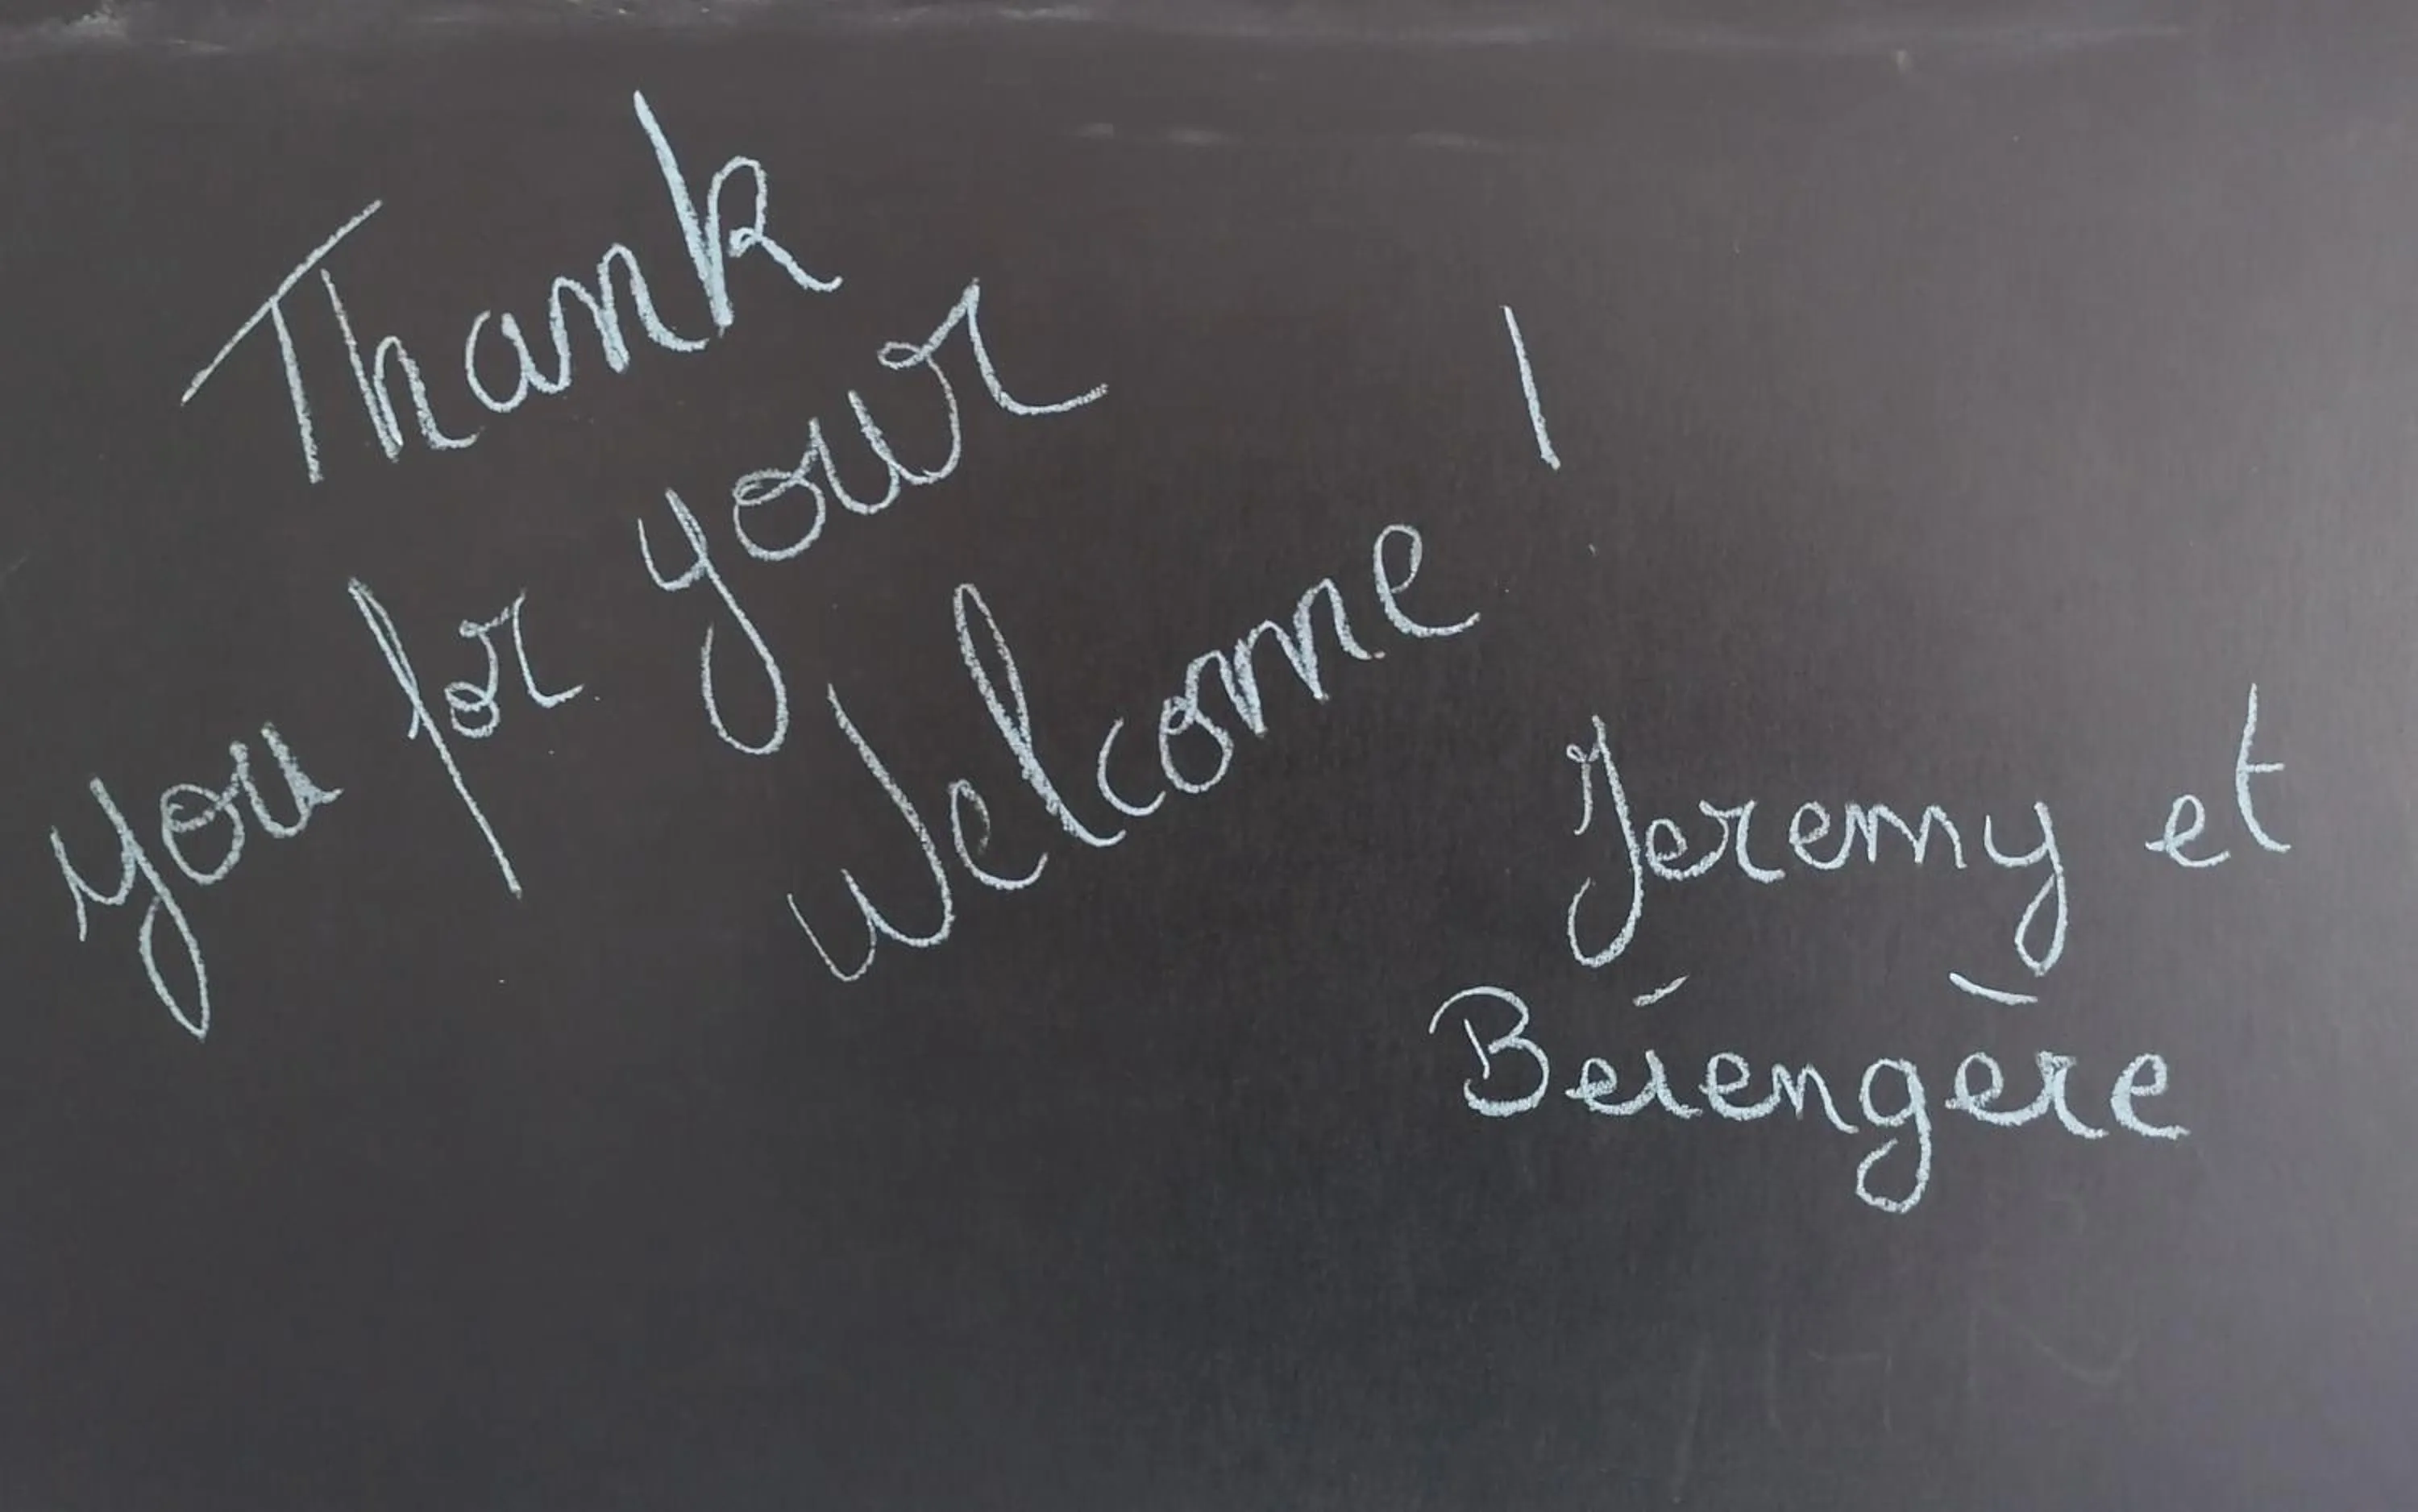 Thank
you for your
welcome !
Jeremy et
Bérengère